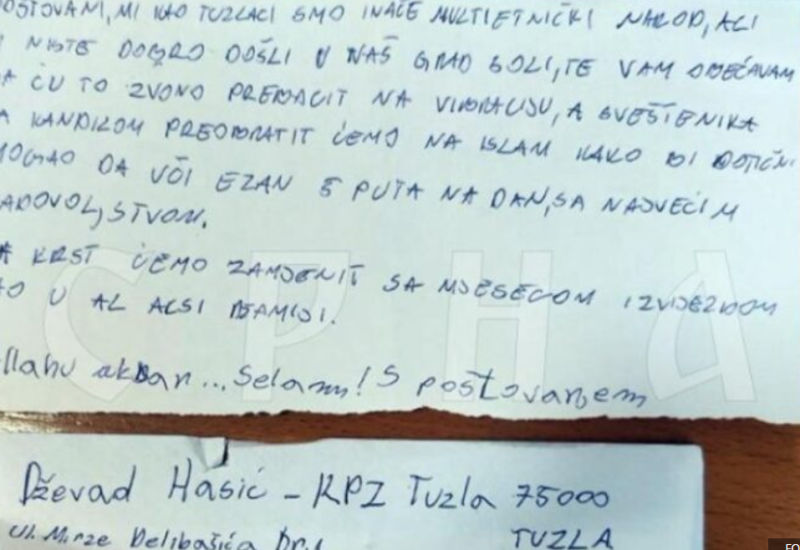 OŠTOVANI, MI KAO TUZLACI SMO INAČE MULTIETNIČKI NAROD, ALI
I NISTE DOBRO DOŠLI U NAŠ GRAD SOLI, TE VAM OBEĆAVAM
A ĆU TO ZVONO PREBACIT NA VIBRACIJU, A SVEŠTENIKA
A KANDILOM PREOBRATIT ĆEMO NA ISLAM KAKO BI DOTIČNI
MOGAO DA UČI EZAN 5 PUTA NA DAN, SA NAJVEĆIM
ADOVOLJSTVOM.
A KRST ĆEMO ZAMJENIT SA MJESECOM I ZVIJEZDOM
AO U AL AKSI DŽAMIJI.
llahu akbar... Selam! S poštovanjem
СРНА
Dževad Hasić - KPZ Tuzla 75000
Ul. Mirze Delibašića Br. 1 TUZLA
FO